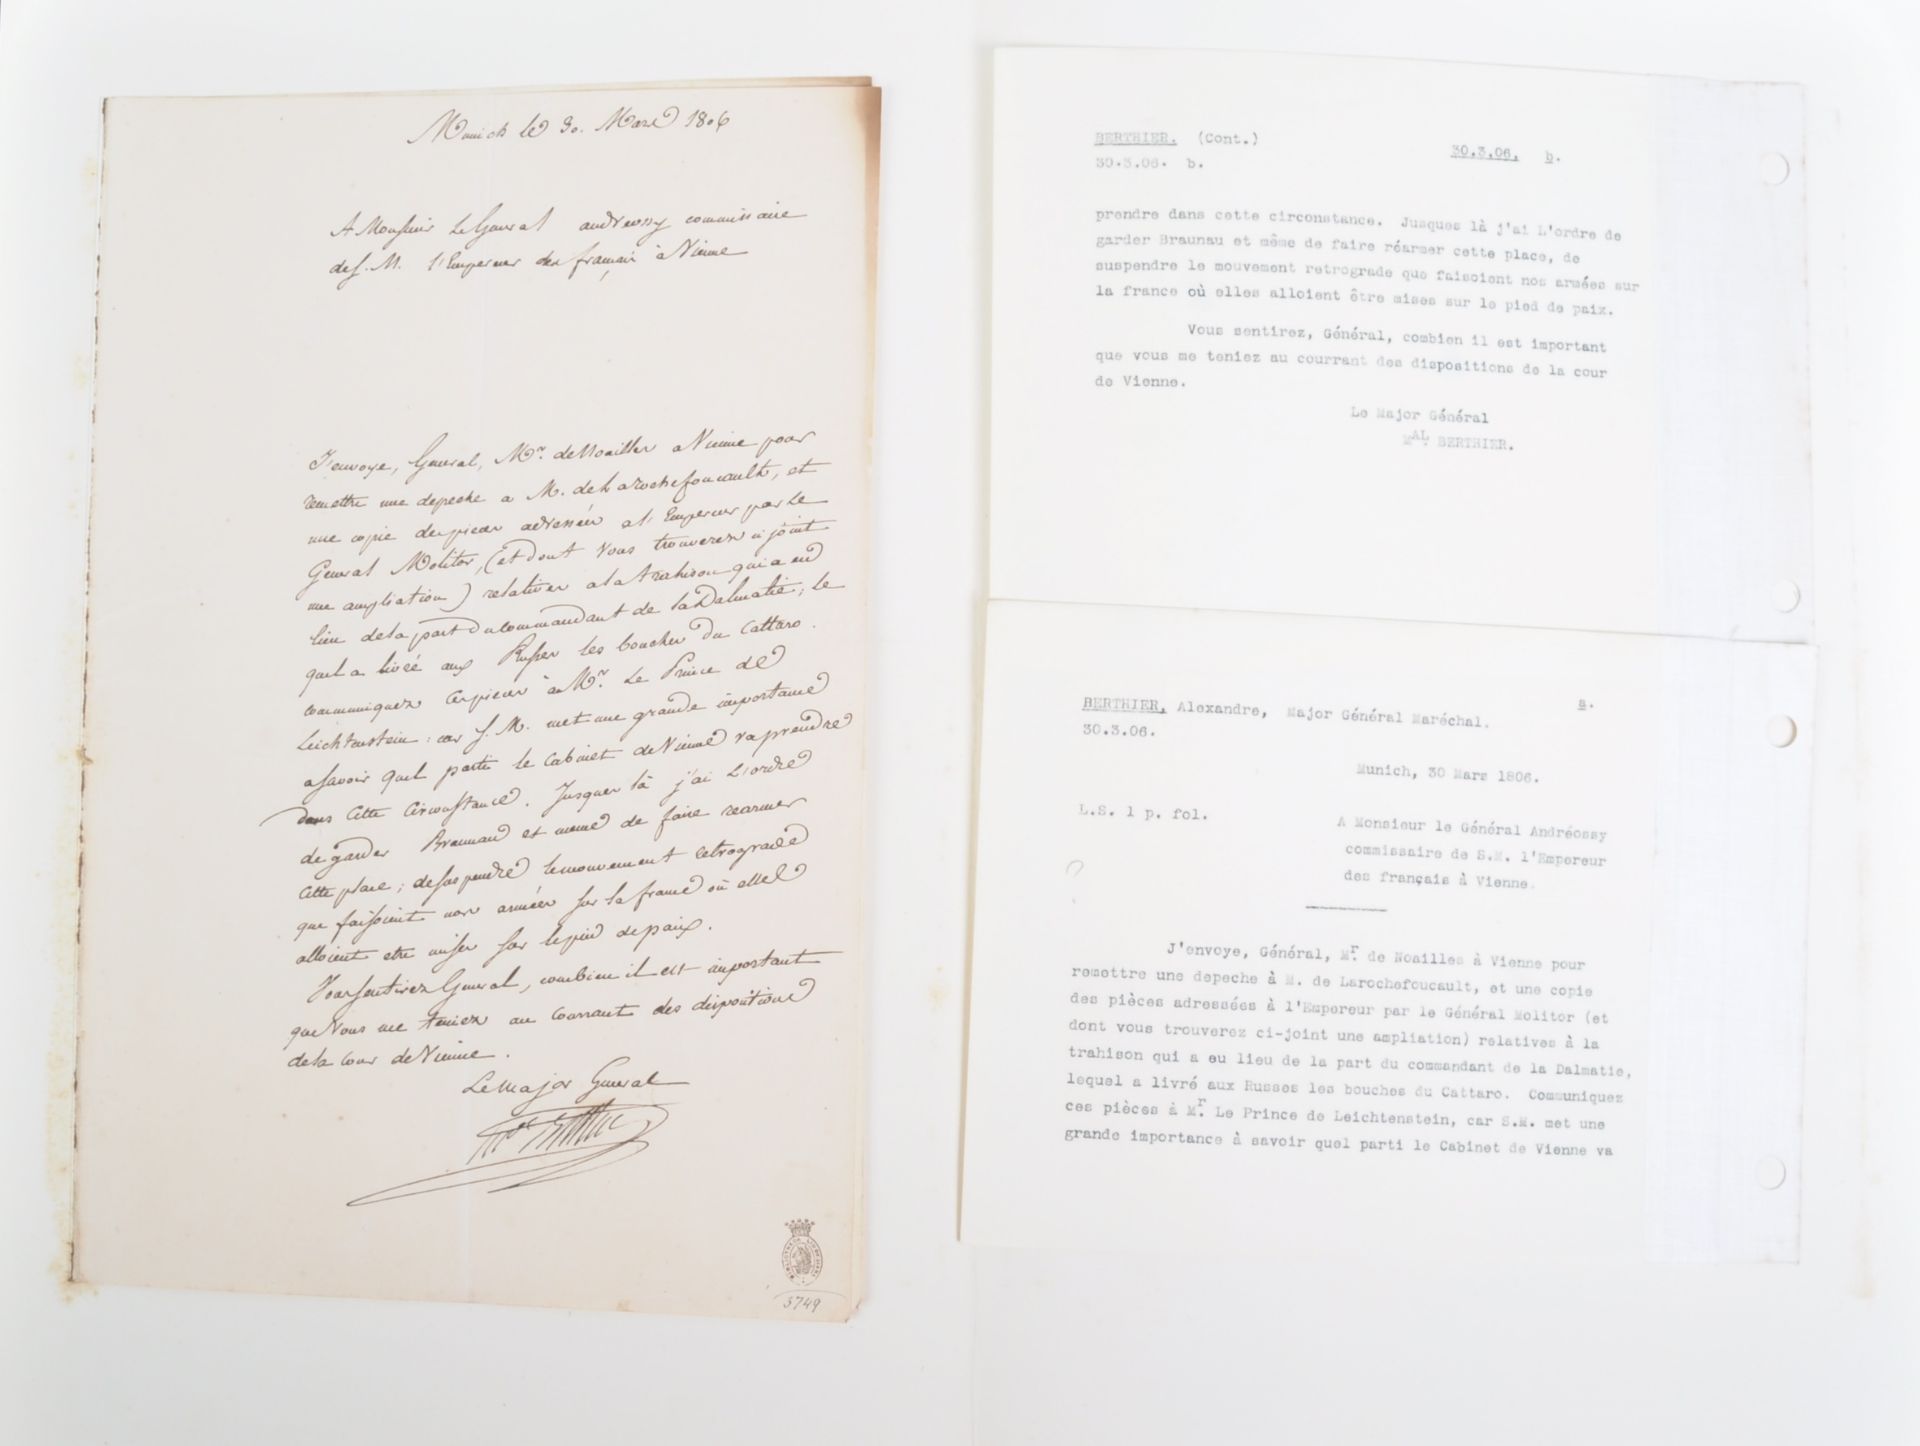 Munich le 30. Mars 1806
A Monsieur Le General andreossy commissaire
de S. M. l'Empereur des français à Vienne
J'envoye, General, Mr. de Noailles a Vienne pour
remettre une depeche a M. de Larochefoucault, et
une copie des pieces adressées a l'Empereur par Le
General Molitor, (et dont vous trouverez ci joint
une ampliation) relatives a la trahison qui a eu
lieu de la part du commandant de la Dalmatie; le
quel a livré aux Russes les bouches du Cattaro.
communiquez ces pieces à Mr. Le Prince de
Leichtenstein: car S. M. met une grande importance
a savoir quel parti le Cabinet de Vienne va prendre
dans cette circonstance. Jusques là j'ai L'ordre
de garder Braunau et meme de faire rearmer
cette place; de suspendre le mouvement retrograde
que faisoient nos armées sur la france où elles
alloient etre mises sur le pied de paix.
Vous sentirez General, combien il est important
que vous me teniez au courrant des dispositions
de la cour de Vienne.
Le Major General
Mal Berthier
3749
BERTHIER. (Cont.) 30.3.06. b.
30.3.06. b.
prendre dans cette circonstance. Jusques là j'ai L'ordre de
garder Braunau et même de faire réarmer cette place, de
suspendre le mouvement retrograde que faisoient nos armées sur
la france où elles alloient être mises sur le pied de paix.
Vous sentirez, Général, combien il est important
que vous me teniez au courrant des dispositions de la cour
de Vienne.
Le Major Général
MAL. BERTHIER.
BERTHIER, Alexandre, Major Général Maréchal. a.
30.3.06.
Munich, 30 Mars 1806.
L.S. 1 p. fol.
A Monsieur le Général Andréossy
commissaire de S.M. l'Empereur
des français à Vienne.
J'envoye, Général, Mr. de Noailles à Vienne pour
remettre une depeche à M. de Larochefoucault, et une copie
des pièces adressées à l'Empereur par le Général Molitor (et
dont vous trouverez ci-joint une ampliation) relatives à la
trahison qui a eu lieu de la part du commandant de la Dalmatie,
lequel a livré aux Russes les bouches du Cattaro. Communiquez
ces pièces à Mr. Le Prince de Leichtenstein, car S.M. met une
grande importance à savoir quel parti le Cabinet de Vienne va